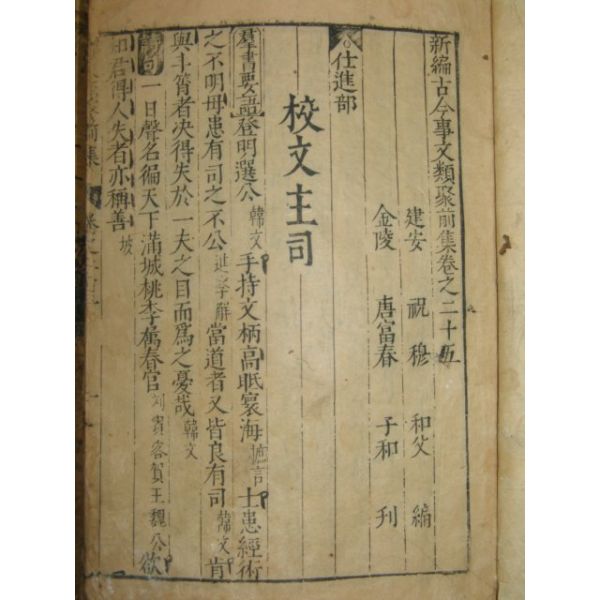 新編古今事文類聚前集卷之二十五
建安 祝穆 和父 編
金陵 唐富春 子和 刊
仕進部
校文主司
羣書要語登明選公韓文手持文柄高眂寰海摭言士患經術
之不明毋患有司之不公進學解當道者又皆良有司韓文肯
與斗筲者决得失於一夫之目而爲之憂哉韓文
詩句一日聲名徧天下滿城桃李屬春官刘賓客賀王魏公欲
知君得人失者亦稱善坡